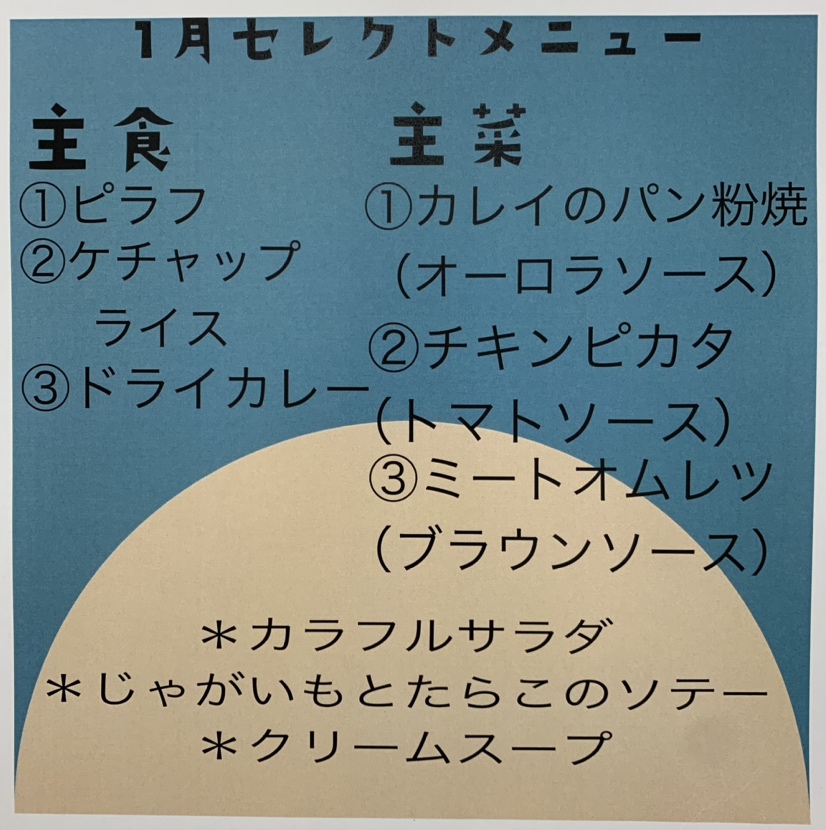 1月セレクトメニュー
主食
①ピラフ
②ケチャップ
ライス
③ドライカレー
主菜
①カレイのパン粉焼
(オーロラソース)
②チキンピカタ
(トマトソース)
③ミートオムレツ
(ブラウンソース)
＊カラフルサラダ
＊じゃがいもとたらこのソテー
＊クリームスープ